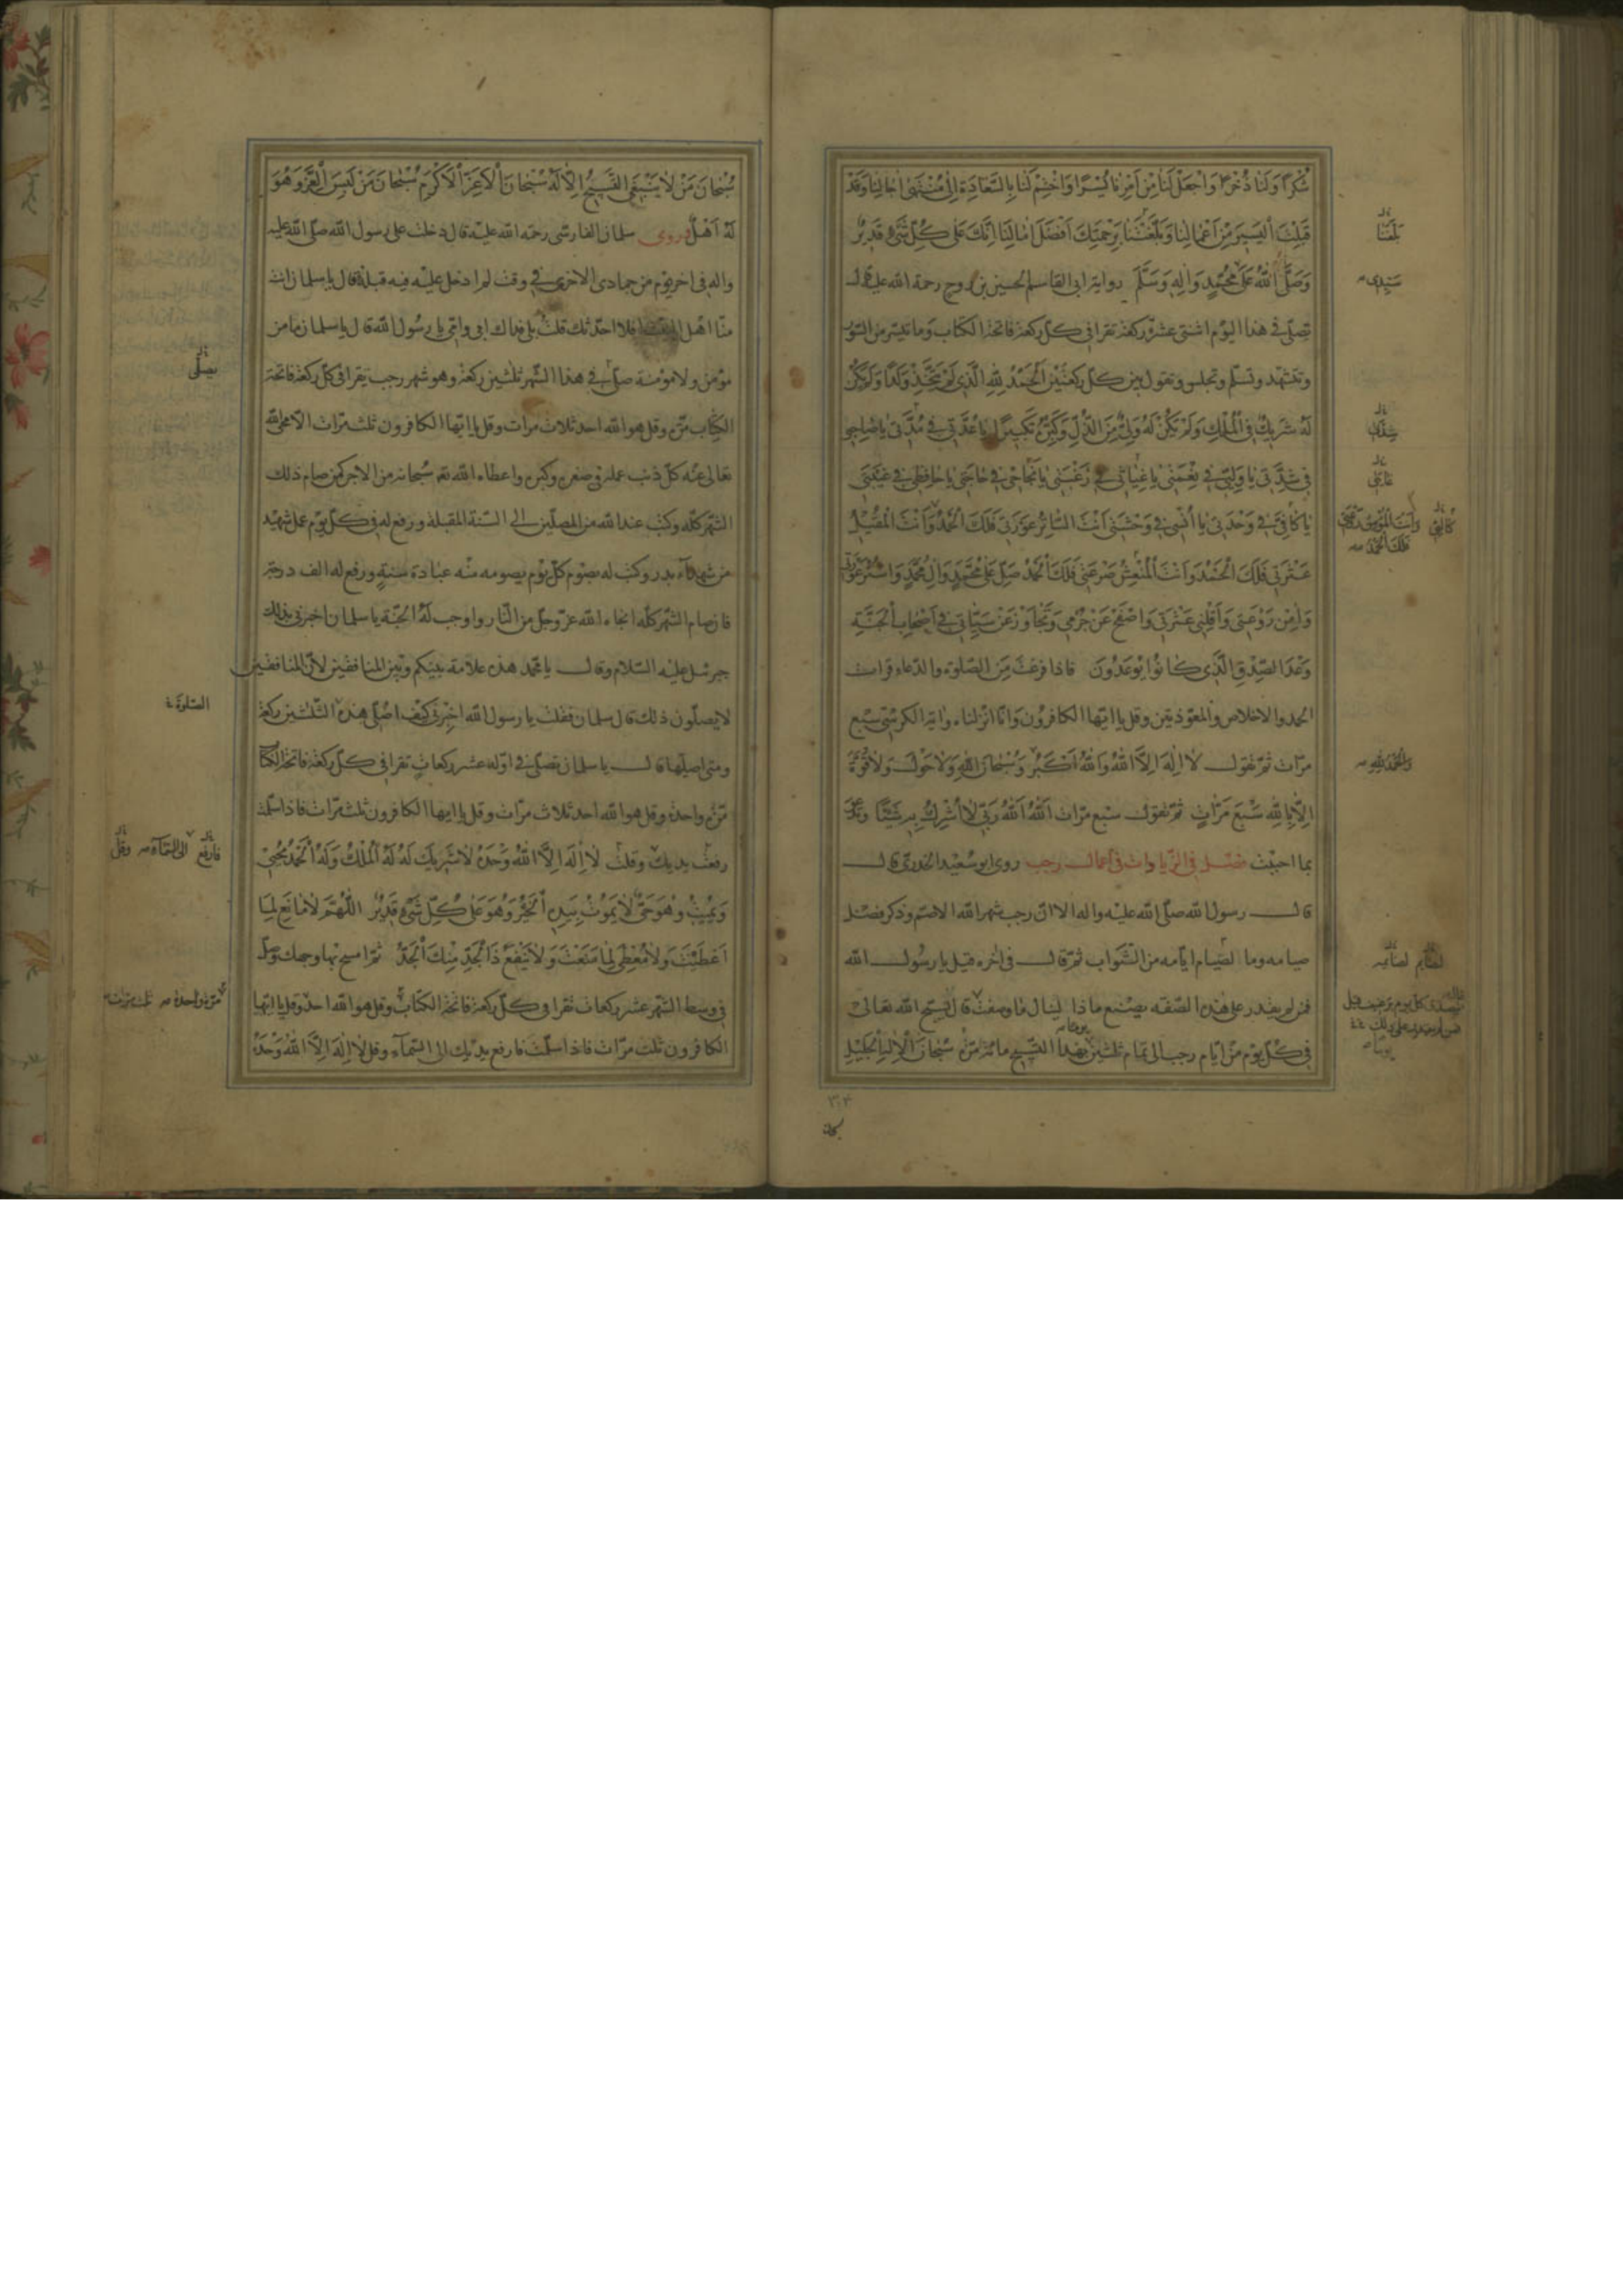 شُكْرًا وَلَنَا ذُخْرًا وَاجْعَلْ لَنَا مِنْ اَمْرِنَا يُسْرًا وَاخْتِمْ لَنَا بِالسَّعَادَةِ اِلىٰ مُنْتَهىٰ اٰجٰالِنٰا وَقَدْ
قَبِلْتَ الْيَسيرَ مِنْ اَعْمٰالِنٰا وَبَلَّغْتَنٰا بِرَحْمَتِكَ اَفْضَلَ اٰمٰالِنٰا اِنَّكَ عَلىٰ كُلِّ شَيْءٍ قَديرٌ
بَلِّغْنَا
وَصَلَّى اللّٰهُ عَلىٰ مُحَمَّدٍ وَاٰلِهِ وَسَلَّمَ رواية ابى القاسم الحسين بن روح رحمة الله عليه قال
تصلّى فى هذا اليوم اثنتى عشرة ركعة تقرا فى كلّ ركعة فاتحة الكتاب وما تيسّر من السّور
وتتشهّد وتسلّم وتجلس وتقول بين كلّ ركعتين اَلْحَمْدُ لِلّٰهِ الَّذى لَمْ يَتَّخِذْ وَلَدًا وَلَمْ يَكُنْ
لَهُ شَريكٌ فِى الْمُلْكِ وَلَمْ يَكُنْ لَهُ وَلِىٌّ مِنَ الذُّلِّ وَكَبِّرْهُ تَكْبيرًا يٰا عُدَّتى فى مُدَّتى يٰا صٰاحِبى
فى شِدَّتى يٰا وَلِيّى فى نِعْمَتى يٰا غِيٰاثى فى رَغْبَتى يٰا نَجٰاحى فى حٰاجَتى يٰا حٰافِظى فى غَيْبَتى
يٰا كٰافِىَّ فى وَحْدَتى يٰا اُنْسى فى وَحْشَتى اَنْتَ السّٰاتِرُ عَوْرَتى فَلَكَ الْحَمْدُ وَاَنْتَ الْمُقيلُ
فَلَكَ الْحَمْدُ
عَثْرَتى فَلَكَ الْحَمْدُ وَاَنْتَ الْمُنْعِشُ صَرْعَتى فَلَكَ الْحَمْدُ صَلِّ عَلىٰ مُحَمَّدٍ وَاٰلِ مُحَمَّدٍ وَاسْتُرْ عَوْرَتى
وَاٰمِنْ رَوْعَتى وَاَقِلْنى عَثْرَتى وَاصْفَحْ عَنْ جُرْمى وَتَجٰاوَزْ عَنْ سَيِّئٰاتى فى اَصْحٰابِ الْجَنَّةِ
وَعْدَ الصِّدْقِ الَّذى كٰانُوا يُوعَدُونَ فاذا فرغت من الصّلوة والدّعاء قرات
الحمد والاخلاص والمعوّذتين وقل يا ايّها الكافرون وانّا انزلناه واية الكرسى سبع
مرّات ثمّ تقول لٰا اِلٰهَ اِلَّا اللّٰهُ وَاللّٰهُ اَكْبَرُ وَسُبْحٰانَ اللّٰهِ وَلٰا حَوْلَ وَلٰا قُوَّةَ
وَالْحَمْدُ لِلّٰهِ
اِلّٰا بِاللّٰهِ سَبْعَ مَرّٰاتٍ ثمّ تقول سبع مرّات اَللّٰهُ اَللّٰهُ رَبّى لٰا اُشْرِكُ بِهِ شَيْئًا وتدعو
بما احببت فصل فى الزّيادات فى اعمال رجب روى ابو سعيد الخدرىّ قال
قال رسول الله صلّى الله عليه واله الا انّ رجب شهر الله الاصمّ وذكر فضل
صيامه وما لصيام ايّامه من الثّواب ثمّ قال فى اخره قيل يا رسول الله
فمن لم يقدر على هذه الصّفة يصنع ماذا لينال ما وصفت قال يسبّح الله تعالى
فى كلّ يوم من ايّام رجب الى تمام ثلثين بهذا التّسبيح مائة مرّة سُبْحٰانَ الْاِلٰهِ الْجَليلِ
يوما
سُبْحٰانَ مَنْ لٰا يَنْبَغِى التَّسْبيحُ اِلّٰا لَهُ سُبْحٰانَ الْاَعَزِّ الْاَكْرَمِ سُبْحٰانَ مَنْ لَبِسَ الْعِزَّ وَهُوَ
لَهُ اَهْلٌ وروى سلمان الفارسى رحمة الله عليه قال دخلت على رسول الله صلّى الله عليه
واله فى اخر يوم من جمادى الاخرى فى وقت لم ادخل عليه فيه قبله قال يا سلمان انت
منّا اهل البيت افلا احدّثك قلت بلى فداك ابى وامّى يا رسول الله قال يا سلمان ما من
مؤمن ولا مؤمنة صلّى فى هذا الشّهر ثلثين ركعة وهو شهر رجب يقرا فى كلّ ركعة فاتحة
يصلّى
الكتاب مرّة وقل هو الله احد ثلاث مرات وقل يا ايّها الكافرون ثلث مرّات الا محى الله
تعالى عنه كلّ ذنب عمله فى صغره وكبره واعطاه الله سبحانه من الاجر كمن صام ذلك
الشّهر كلّه وكتب عند الله من المصلّين الى السّنة المقبلة ورفع له فى كلّ يوم عمل شهيد
من شهداء بدر وكتب له بصوم كلّ يوم يصومه منه عبادة سنة ورفع له الف درجة
فان صام الشّهر كلّه انجاه الله عزّ وجلّ من النّار واوجب له الجنّة يا سلمان اخبرنى بذلك
جبرئيل عليه السّلام وقال يا محمّد هذه علامة بينكم وبين المنافقين لانّ المنافقين
لا يصلّون ذلك قال سلمان فقلت يا رسول الله اخبرنى كيف اصلّى هذه الثّلثين ركعة
الصّلوة
ومتى اصلّيها قال يا سلمان تصلّى فى اوّله عشر ركعات تقرا فى كلّ ركعة فاتحة الكتاب
مرّة واحدة وقل هو الله احد ثلاث مرّات وقل يا ايها الكافرون ثلث مرّات فاذا سلّمت
رفعت يديك وقلت لٰا اِلٰهَ اِلَّا اللّٰهُ وَحْدَهُ لٰا شَريكَ لَهُ لَهُ الْمُلْكُ وَلَهُ الْحَمْدُ يُحْيى
فارفع الى السّماء وقل
وَيُميتُ وَهُوَ حَىٌّ لٰا يَمُوتُ بِيَدِهِ الْخَيْرُ وَهُوَ عَلىٰ كُلِّ شَيْءٍ قَديرٌ اَللّٰهُمَّ لٰا مٰانِعَ لِمٰا
اَعْطَيْتَ وَلٰا مُعْطِىَ لِمٰا مَنَعْتَ وَلٰا يَنْفَعُ ذَا الْجَدِّ مِنْكَ الْجَدُّ ثمّ امسح بها وجهك وصلّ
فى وسط الشّهر عشر ركعات تقرا فى كلّ ركعة فاتحة الكتاب وقل هو الله احد وقل يا ايّها
مرّة واحدة ثلث مرّات
الكافرون ثلث مرّات فاذا سلّمت فارفع يديك الى السّماء وقل لٰا اِلٰهَ اِلَّا اللّٰهُ وَحْدَهُ